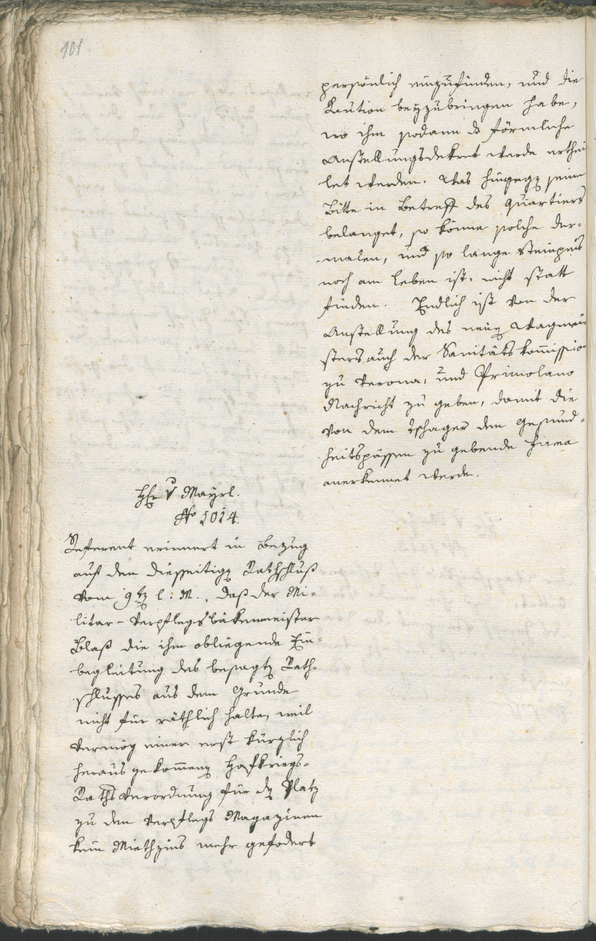 101
persönlich einzufinden, und die
Kaution beyzubringen habe,
wo ihm sodann d förmliche
Anstellungsdekret werde erthei
let werden. Was hingegen seine
Bitte in Betreff des Quartiers
belanget, so könne solche der-
malen, und so lange
noch am Leben ist, nicht statt
finden. Endlich ist von der
Anstellung des neuen Wagmei
sters auch der Sanitäts kommission
zu Verona, und Primolano
Nachricht zu geben, damit die
von dem den Gesund-
heitspässen zu gebende Firma
anerkennet werde.
H: v Mayrl.
No 1014.
Referent erinnert in Bezug
auf den diesseitigen Rathschluß
vom 9ten l: M:, daß der Mi-
litar-Verpflegsbäkenmeister
Blaß die ihm obliegende Ein-
begleitung des besagten Rath-
schlusses aus dem Grunde
nicht für räthlich halte, weil
vermög einer erst kürzlich
herausgekommenen Hofkriegs-
Raths Verordnung für den Platz
zu den Verpflegs Magazinen
kein Miethzins mehr gefodert